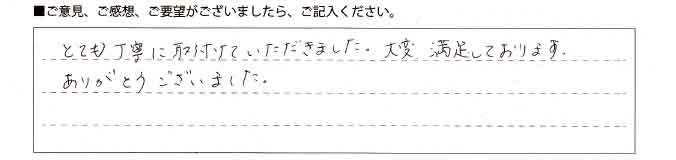 ■ご意見、ご感想、ご要望がございましたら、ご記入ください。
とても丁寧に取付けていただきました。大変満足しております。
ありがとうございました。